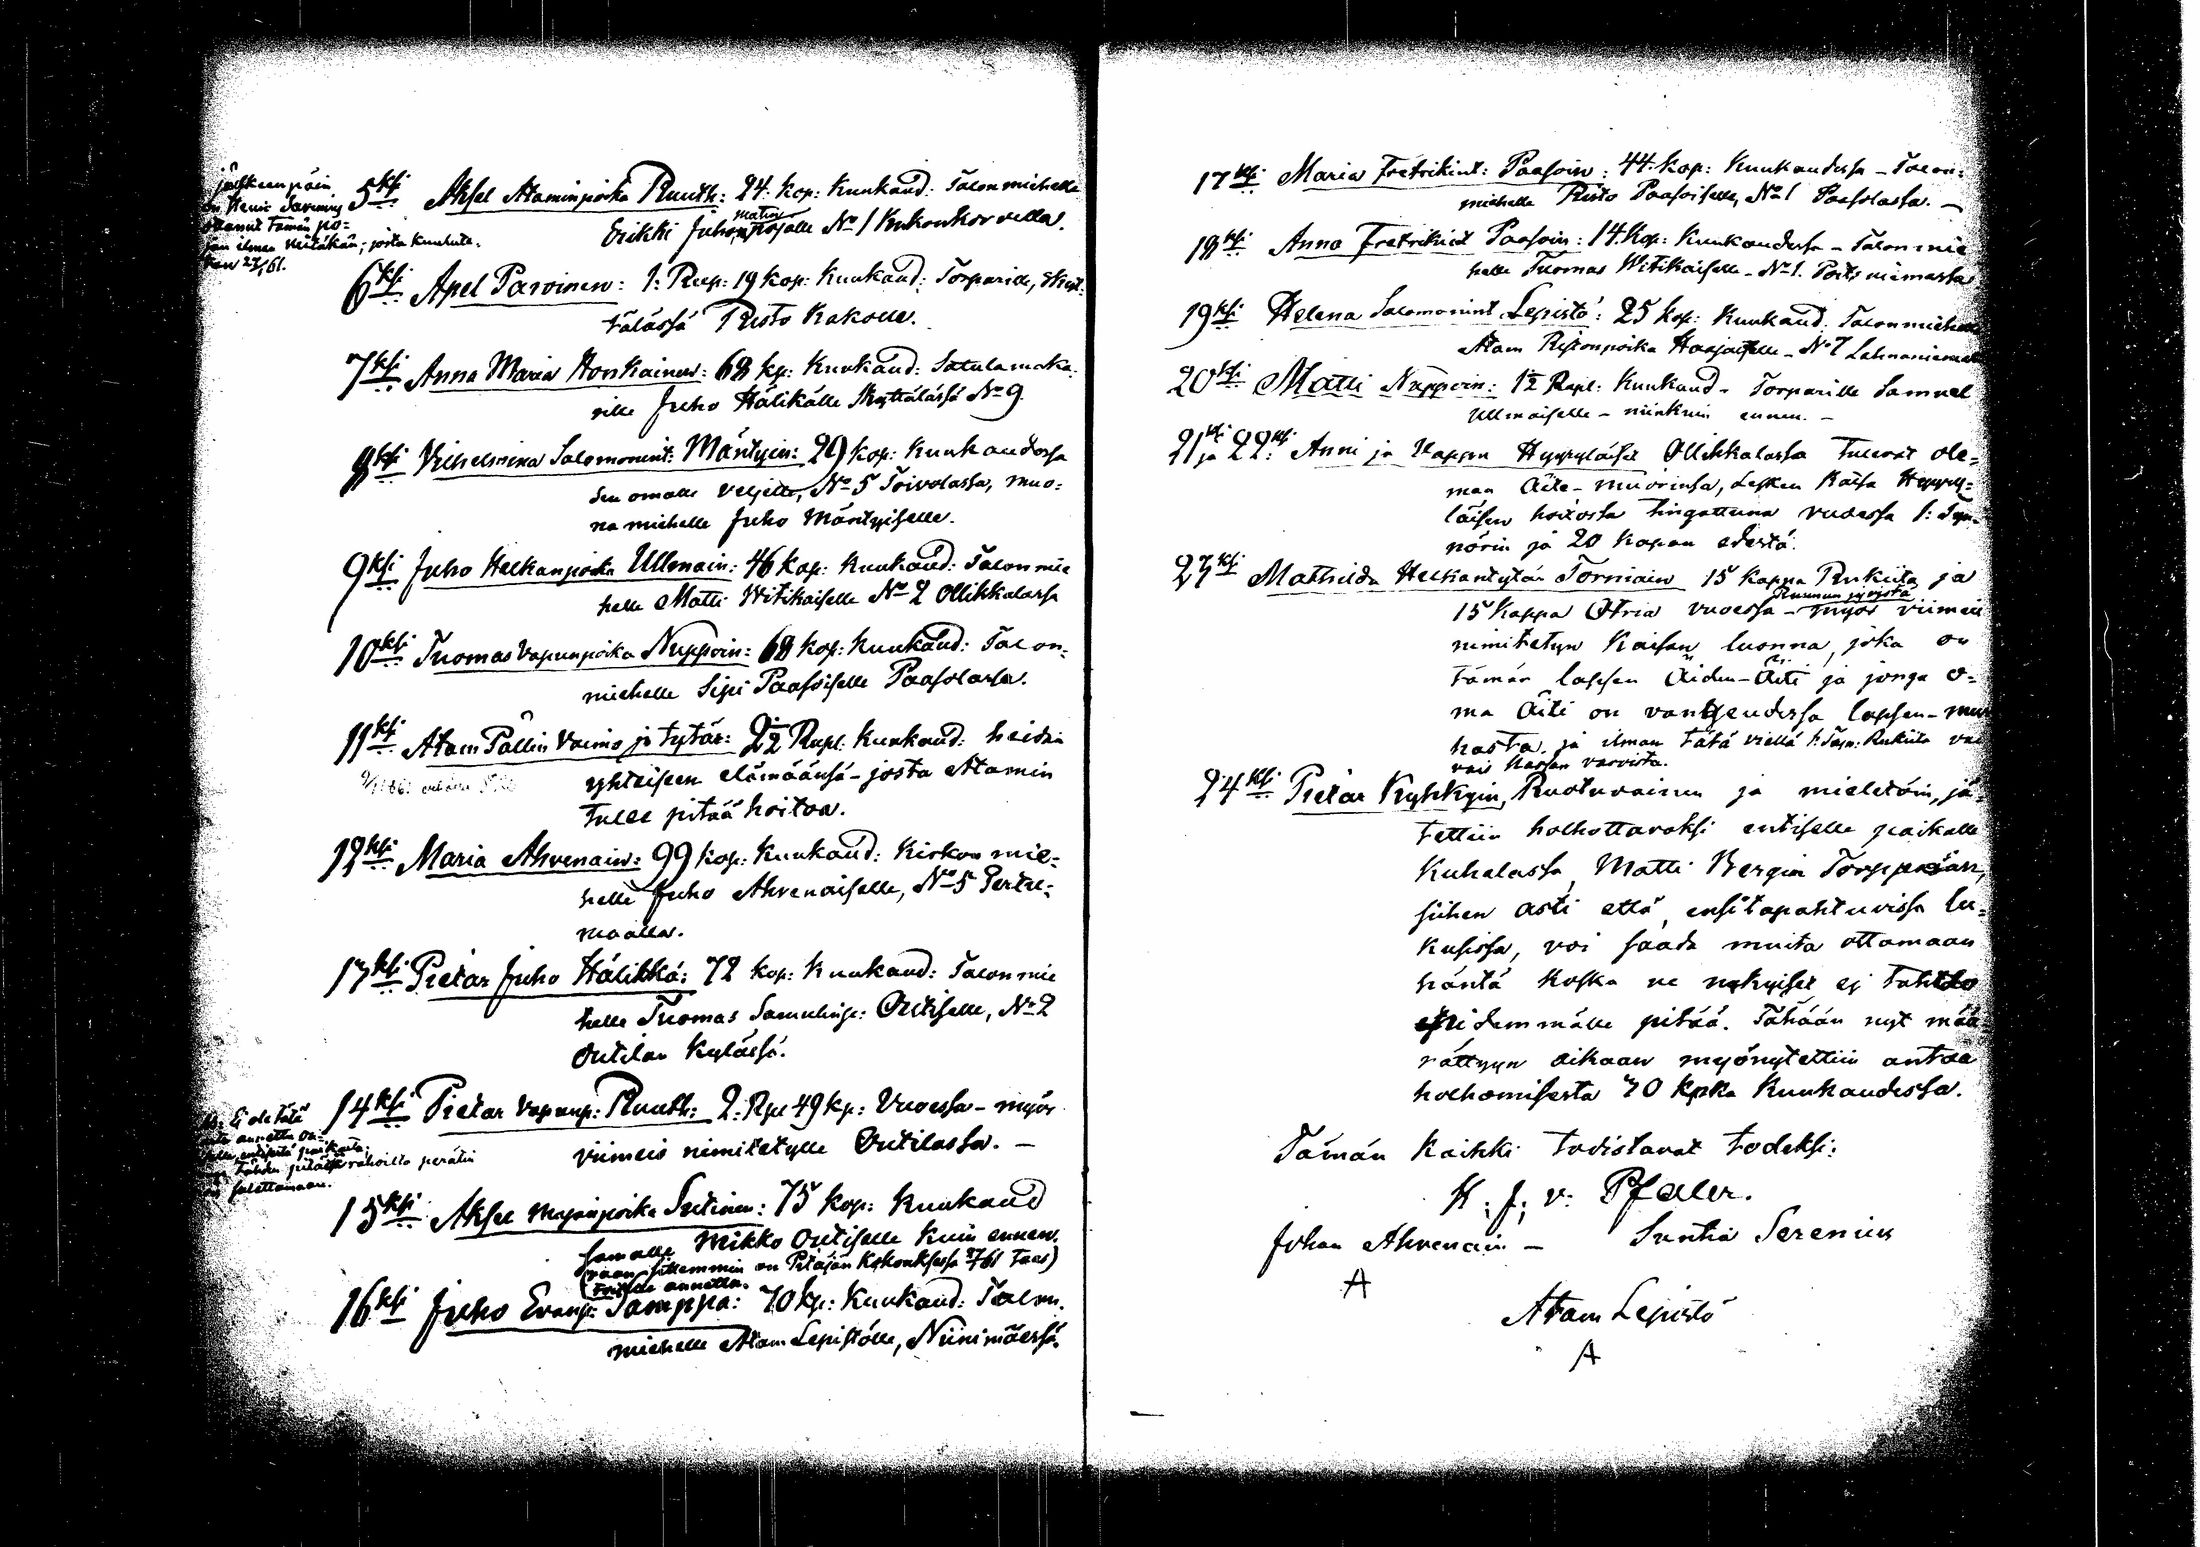 jälkeenpäin
on Henr: Savenius
ottanut tämän po=
jan ilman mitäkän; josta kuulute.
taan 27/1 61.
5ksi Aksel Ataminpoika Ruuth: 24. kop: Kuukaud: Talonmiehelle
Erikki Juhon Matin pojalle No 1 Kukonkorvella.
6ksi Apel Parvinen: 1: Rup: 19 kop: Kuukaud: Torparide, Skyt=
tälässä Risto Kakolle.
7ksi Anna Maria Honkainen: 68 kp: Kuukaud: Satulamaka=
rille Juho Hälikälle Skyttälässä No 9.
8ksi Vilhelmina Salomonint: Mäntyin: 29 kop: Kuukaudessa
sen omalle veljelle, No 5 Toivolassa, muo=
na miehelle Juho Mäntyiselle.
9ksi Juho Heikanpoika Ullmain: 46 kop: Kuukaud: Talonmie
helle Matti Witikaiselle No 2 Ollikkalassa
10ksi Tuomas Vapunpoika Nuppoin: 68 kop: Kuukaud: Talon=
miehelle Sipi Paasoiselle Paasolassa.
11ksi Atam Pällin Vaimo ja tytär: 2½ Rupl: Kuukaud: heidän
yhteiseen elämäänsä - josta Atamin
tulee pitää hoitoa.
12ksi Maria Ahvenain: 99 kop: Kuukaud: Kirkon mie=
helle Juho Ahvenaiselle, No 5 Pertte=
maalla.
13ksi Pietar Juho Hälikkä: 72 kop: Kuukaud: Talonmie
helle Tuomas Samulinp: Outiselle, No 2
Outilan Kylässä.
14ksi Pietar Vapunp: Ruuth: 2: Rpl 49 kp: Vuoessa - myös
viimeis nimitetylle Outilassa. -
15ksi Aksel Majanpoika Sutinen: 75 kop: Kuukaud
samalle Mikko Outiselle kuin ennen.
(vaan sittemmin on Pitäjän Kokouksessa 27/1 61 taas)
(toiselle annettu.
16ksi Juho Evanp: Tamppa: 70 kp: Kuukaud: Talon=
miehelle Atam Lepistölle, Niinimäessä.
17ksi Maria Fretrikint: Paasoin: 44. kop: Kuukaudessa - Talon=
miehelle Risto Paasoiselle, No 1 Paasolassa. -
18ksi Anna Fretrikint Paasoin: 14. kop: Kuukaudessa - Talonmie
helle Tuomas Witikaiselle - No 1. Poitsniemessä
19ksi Helena Salomonint Lepistö: 25 kop: Kuukaud: Talonmiehelle
Atam Ristonpoika Haajaiselle - No 7 Lahnaniemessä
20ksi Matti Nuppoin: 1½ Rupl: Kuukaud - Torparille Samuel
Ullmaiselle - niinkuin ennen. -
21ksi ja 22ksi: Anni ja Kappu Hyyryläiset Ollikkalassa tulevat ole=
maan Äite-muorinsa, Lesken Kaisa Hyyry=
läisen hoitossa tingattuna vuodessa 1: Tyn=
nörin ja 20 Kapan edestä.
23ksi Mathilda Heikantytär Torniain 15 Kappa Rukiita ja
15 Kappa Otria vuoessa - Ruunun jyvistä myös viimeis
nimitetyn Kaisan luonna, joka on
tämän lapsen Äiden-Äiti ja jonga o=
ma Äiti on vangeudessa lapsen-mur
hasta. ja ilman tätä viellä 1: Tyn: Rukiita vai
vais Kassan varoista.
24ksi Pietar Kyhkyin, Ruotuvainen ja mieletöin, jä=
tettiin holhottavaksi entiselle paikalle
Kuhalassa, Matti Bergin Torppaan,
siihen asti että, ensitapahtuvissa lu=
kusissa, voi saada muita ottamaan
häntä koska ne nykyiset ej tahdo
enidemmälle pitää. Tähään nyt mää=
rättyyn aikaan myönytettiin antaa
holhomisesta 70 kpka Kuukaudessa.
Tämän kaikki todistavat todeksi:
K. J. v: Pfaler.
Johan Ahvenain - Suntia Serenius
A
Atam Lepistö
A